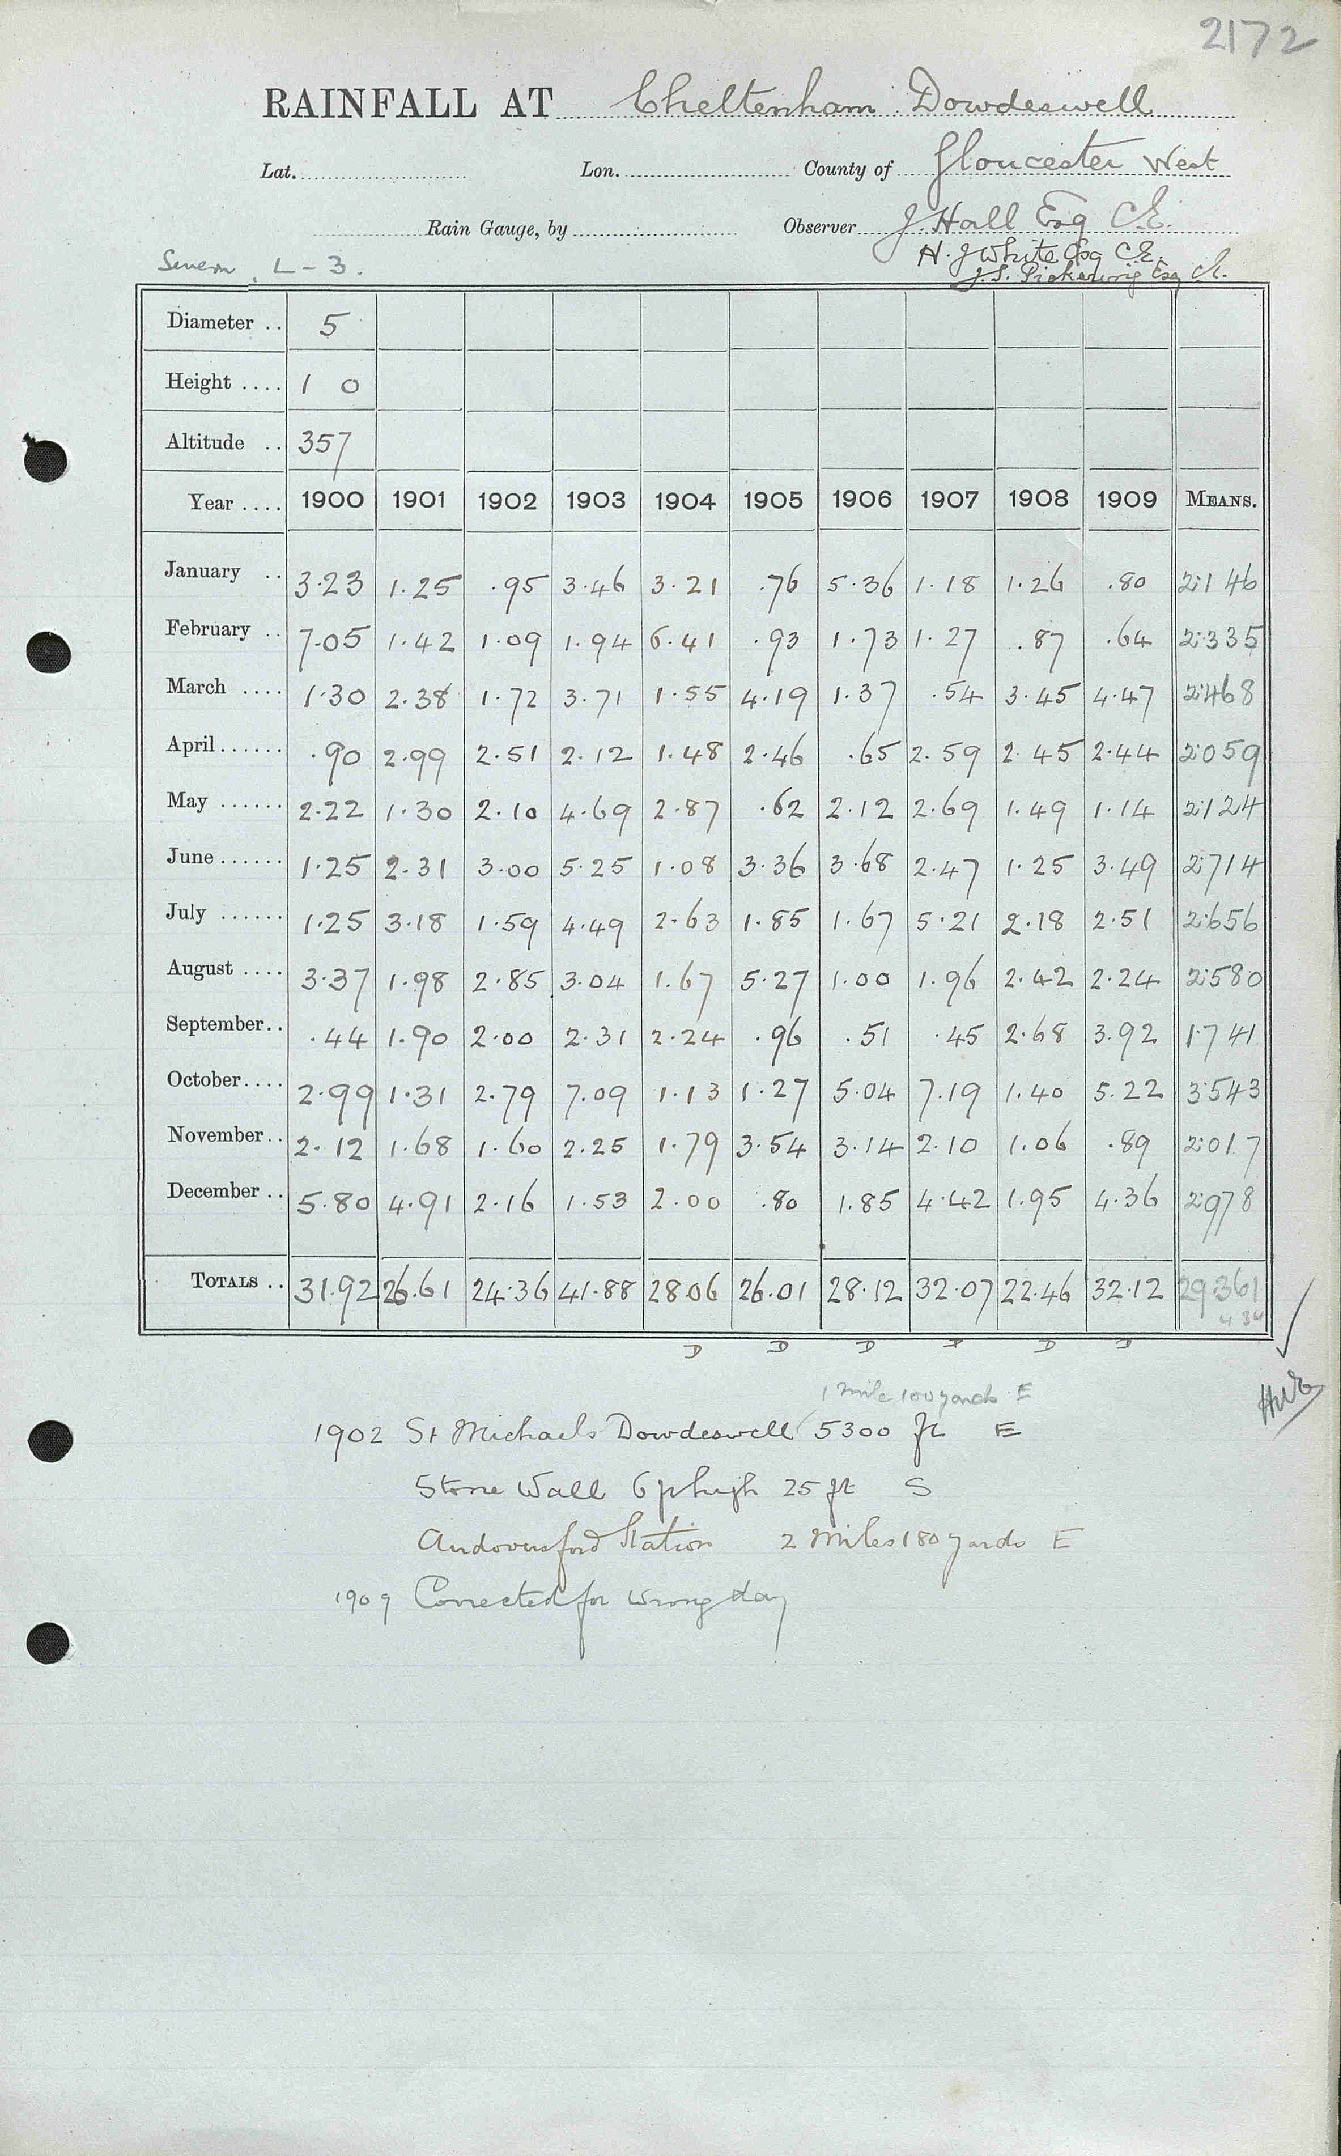 2172
RAINFALL AT Cheltenham: Dowdeswell
Lat. Lon. County of Gloucester West
Rain Gauge, by Observer J. Hall Esq C.E.
H. J White Esq C.E.
Severn L-3. J.S. Pickering Esq C.E.
Diameter .. 5
Height .... 1 0
Altitude .. 357
Year .... 1900 1901 1902 1903 1904 1905 1906 1907 1908 1909 MEANS.
January .. 3.23 1.25 .95 3.46 3.21 .76 5.36 1.18 1.26 .80 2.146
February .. 7.05 1.42 1.09 1.94 6.41 .93 1.73 1.27 .87 .64 2.335
March .... 1.30 2.38 1.72 3.71 1.55 4.19 1.37 .54 3.45 4.47 2.468
April ...... .90 2.99 2.51 2.12 1.48 2.46 .65 2.59 2.45 2.44 2.059
May ...... 2.22 1.30 2.10 4.69 2.87 .62 2.12 2.69 1.49 1.14 2.124
June ...... 1.25 2.31 3.00 5.25 1.08 3.36 3.68 2.47 1.25 3.49 2.714
July ...... 1.25 3.18 1.59 4.49 2.63 1.85 1.67 5.21 2.18 2.51 2.656
August .... 3.37 1.98 2.85 3.04 1.67 5.27 1.00 1.96 2.42 2.24 2.580
September.. .44 1.90 2.00 2.31 2.24 .96 .51 .45 2.68 3.92 1.741
October.... 2.99 1.31 2.79 7.09 1.13 1.27 5.04 7.19 1.40 5.22 3.543
November.. 2.12 1.68 1.60 2.25 1.79 3.54 3.14 2.10 1.06 .89 2.017
December .. 5.80 4.91 2.16 1.53 2.00 .80 1.85 4.42 1.95 4.36 2.978
TOTALS .. 31.92 26.61 24.36 41.88 28.06 26.01 28.12 32.07 22.46 32.12 29.361
D D D D D D
1 mile 100 yards E
1902 St Michaels Dowdeswell 5300 ft E
Stone Wall 6ft high 25 ft S
Andoversford Station 2 Miles 180 yards E
1909 Corrected for wrong day